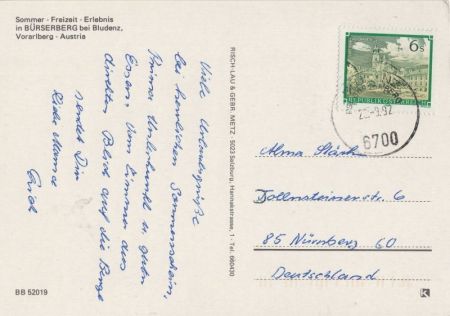 Sommer - Freizeit - Erlebnis
in BÜRSERBERG bei Bludenz,
Vorarlberg - Austria
Viele Urlaubsgrüße
bei herrlichem Sonnenschein,
Prima Unterkunft u. gutes
Essen. Vom Zimmer aus
direkten Blick auf die Berge
sendet Dir
liebe Mama
Erich
BB 52019
RISCH-LAU & GEBR. METZ · 5023 Salzburg, Hannakstrasse, 1 · Tel. 660430
6 S
REPUBLIK ÖSTERREICH
6700
Alma Stärk
Dollnsteinerstr. 6
85 Nürnberg 60
Deutschland
K